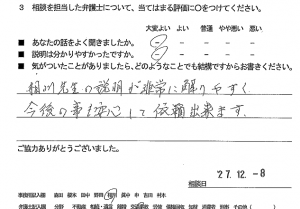 3 相談を担当した弁護士について、当てはまる評価に○をつけてください。
大変よい よい 普通 やや悪い 悪い
■ あなたの話をよく聞きましたか。
■ 説明は分かりやすかったですか。
■ 気がついたことがありましたら、どのようなことでも結構ですからお書きください。
相川先生の説明が非常に解りやすく
今後の事も安心して依頼出来ます.
ご協力ありがとうございました。
27.12.-8
相談日